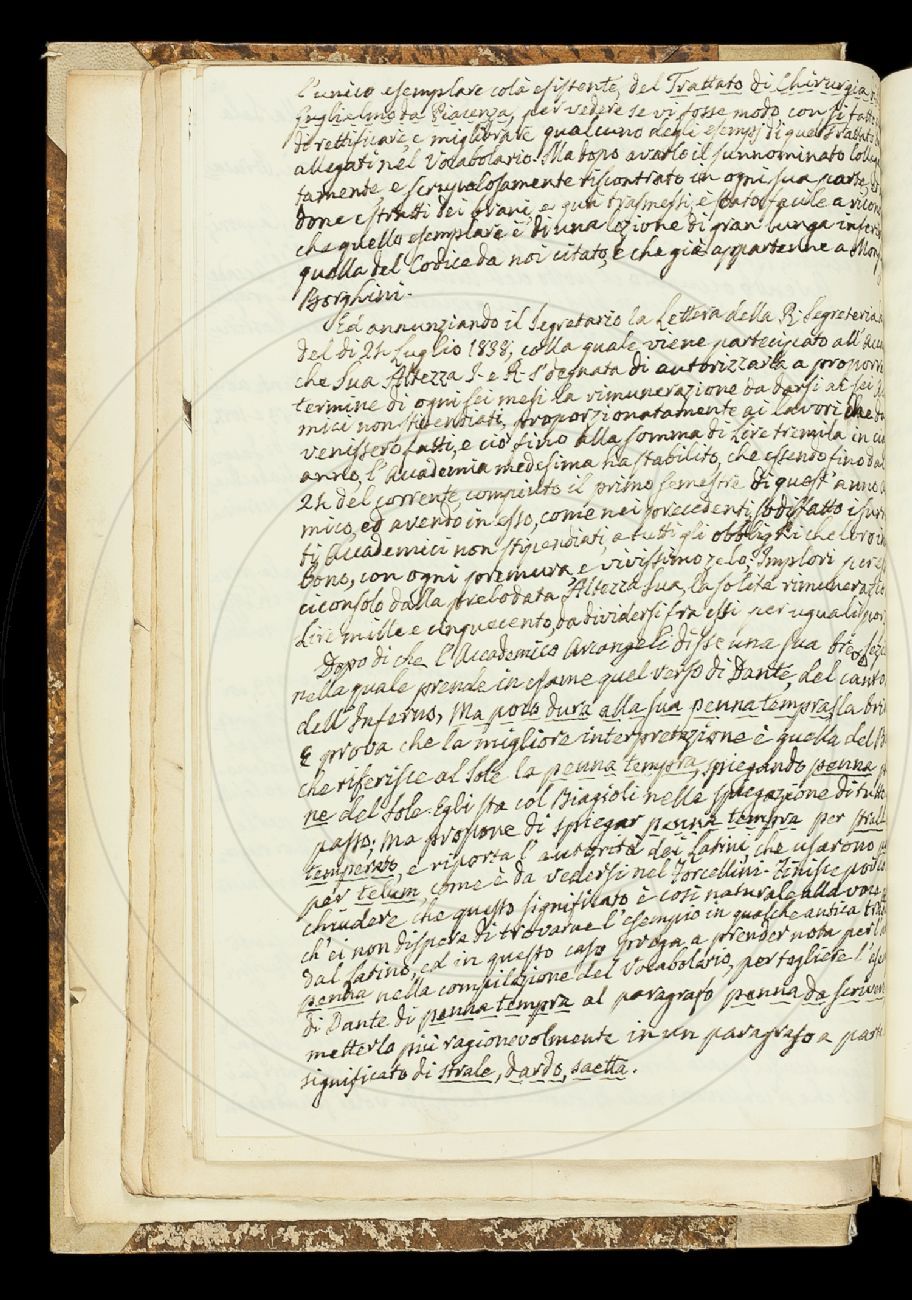 l'unico esemplare colà esistente, del Trattato di Chirurgia
Guglielmo da Piacenza, per vedere se vi fosse modo con sì fatto
di rettificare, e migliorare qualcuno degli esempj di quel Trattato
allegati nel Vocabolario. Ma dopo avarlo il sunnominato
tamente, e scrupolosamente riscontrato in ogni sua parte, ed
done estratti dei brani, e qua trasmessi, è stato facile a
che quello esemplare è di una lezione di gran lunga
quella del Codice da noi citato, e che già appartenne a
Borghini.
Ed annunziando il Segretario la Lettera della R. Segreteria
del dì 24 Luglio 1838, colla quale viene partecipato all'
che Sua Altezza I. e R. s'degnata di autorizzarla a
termine di ogni sei mesi la rimunerazione da darsi ai sei
mici non stipendiati, proporzionatamente ai lavori che
venissero fatti, e ciò fino alla somma di Lire tremila in
anno, l'Accademia medesima ha stabilito, che essendo fino dal
24 del corrente compiuto il primo semestre di quest'anno
mico, ed avendo in esso, come nei precedenti, sodisfatto i
ti Accademici non stipendiati, a tutti gli obblighi che loro
bono, con ogni premura, e vivissimo zelo; Implori per
ciconsolo dalla prelodata Altezza Sua, la solita
Lire mille e cinquecento, da dividersi fra essi per uguali
Dopo di che l'Accademico Arcangeli disse una sua
nella quale prende in esame quel verso di Dante, del canto
dell'Inferno, Ma poco dura alla sua penna tempra, la
E prova che la migliore interpretazione è quella del
che riferisce al Sole la penna tempra, spiegando penna
ne del Sole. Egli sta col Biagioli nella spiegazione di
passo: Ma propone di spiegar penna tempra per
temperato, e riporta l'autorità dei Latini, che usarono
per telum, come è da vedersi nel Forcellini. Finisce poi
chiudere che questo significato è così naturale alla voce
ch'ei non dispera di trovarne l'esempio in qualche antica
dal Latino, ed in questo caso prega a prender nota per
penna nella compilazione del Vocabolario, per togliere
di Dante di penna tempra al paragrafo penna da scrivere
metterlo più ragionevolmente in un paragrafo a parte
significato di strale, dardo, saetta.